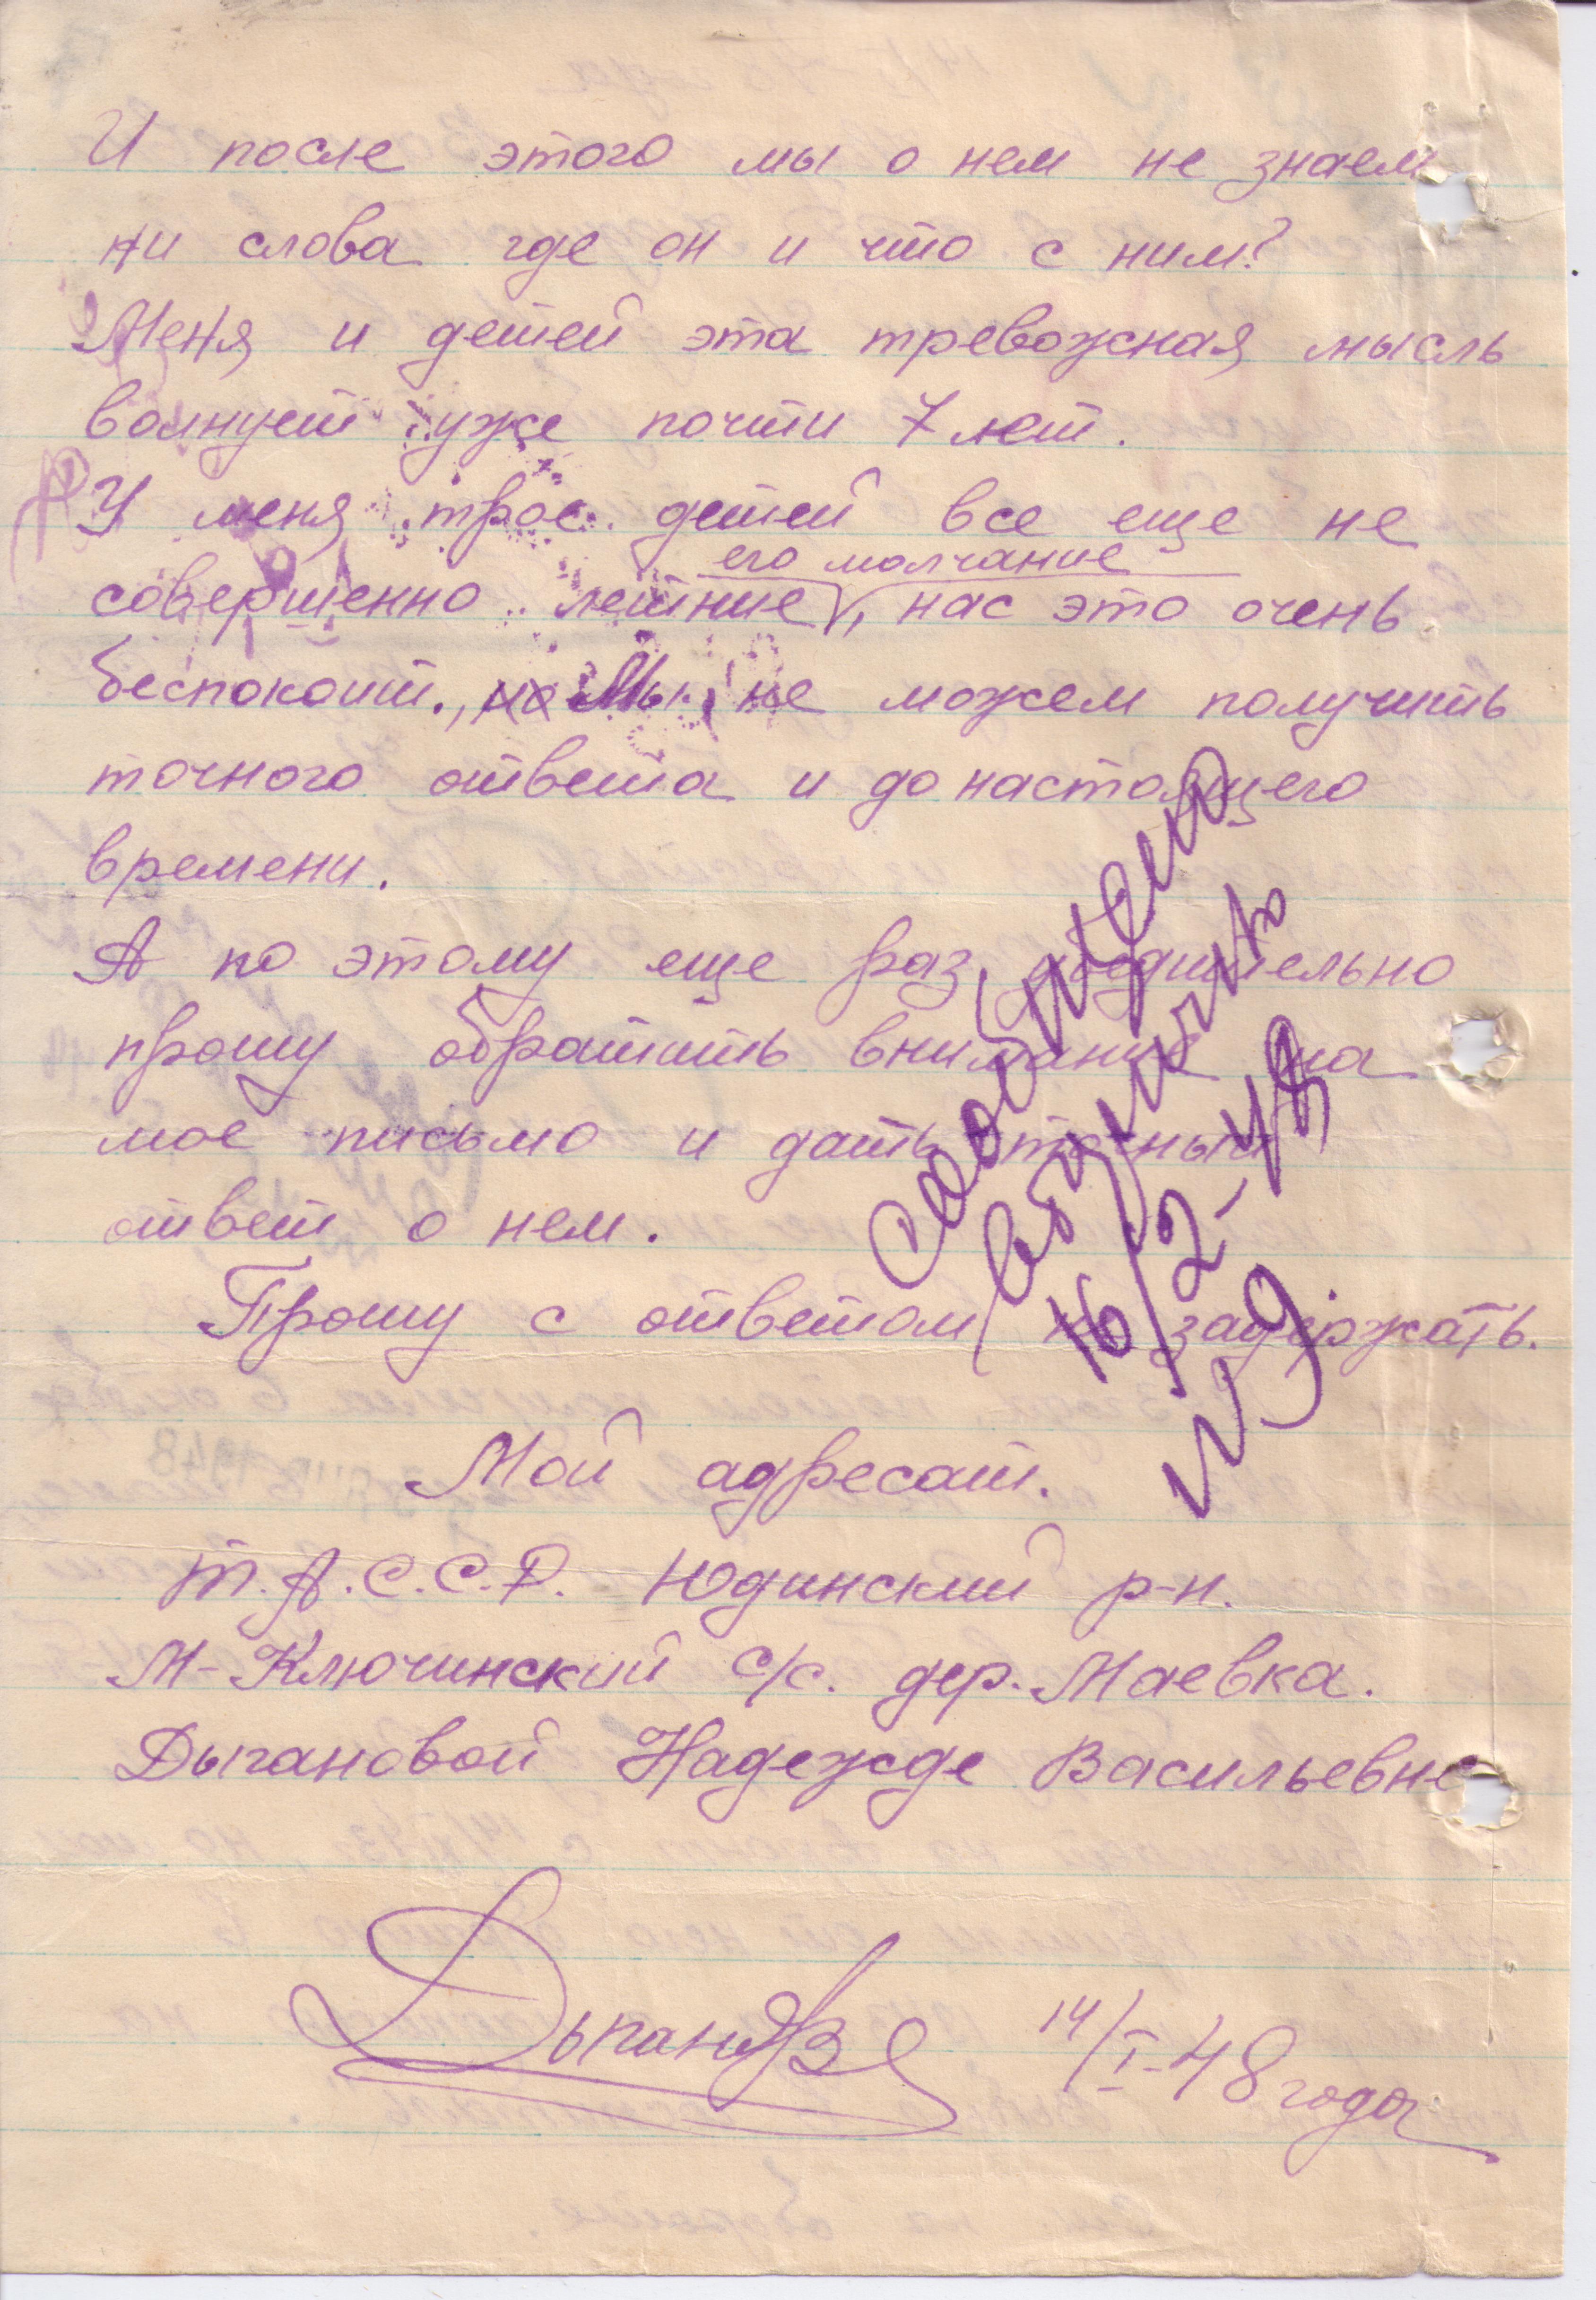 И после этого мы о нем не знаем
ни слова где он и что с ним?
Меня и детей эта тревожная мысль
волнует уже почти 7 лет.
У меня трое детей все еще не
его молчание
совершенно летние, нас это очень
беспокоит., но Мы не можем получить
точного ответа и до настоящего
времени.
А по этому еще раз убедительно
прошу обратить внимание на
мое письмо и дать точный
ответ о нем.
Прошу с ответом не задержать.
Мой адресат.
Т.А.С.С.Р. Юдинский р-н.
М-Ключинский с/с. дер. Маевка.
Дыгановой Надежде Васильевне
14/I-48 года
сообщено
16/2-48
№9